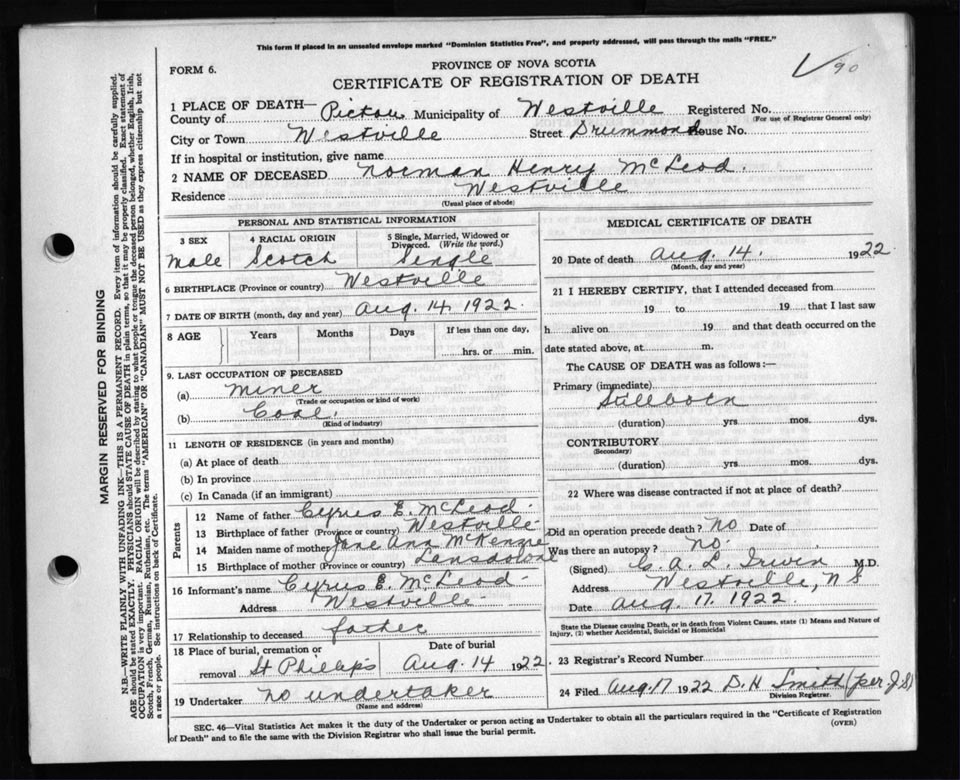 This form if placed in an unsealed envelope marked "Dominion Statistics Free", and property addressed, will pass through the mails "FREE."
FORM 6.
PROVINCE OF NOVA SCOTIA
CERTIFICATE OF REGISTRATION OF DEATH
90
1 PLACE OF DEATH—
County of Pictou Municipality of Westville Registered No.
(For use of Registrar General only)
City or Town Westville Street Drummond House No.
If in hospital or institution, give name
2 NAME OF DECEASED Norman Henry McLeod.
Residence Westville
(Usual place of abode)
PERSONAL AND STATISTICAL INFORMATION
3 SEX 4 RACIAL ORIGIN 5 Single, Married, Widowed or Divorced. (Write the word.)
Male Scotch Single
6 BIRTHPLACE (Province or country) Westville
7 DATE OF BIRTH (month, day and year) Aug. 14, 1922.
8 AGE Years Months Days If less than one day,
hrs. or min.
9. LAST OCCUPATION OF DECEASED
(a) Miner
(Trade or occupation or kind of work)
(b) Coal.
(Kind of industry)
11 LENGTH OF RESIDENCE (in years and months)
(a) At place of death
(b) In province
(c) In Canada (if an immigrant)
Parents
12 Name of father Cyrus E. McLeod.
13 Birthplace of father (Province or country) Westville
14 Maiden name of mother Jane Ann McKenzie
15 Birthplace of mother (Province or country) Lansdowne
16 Informant's name Cyrus E. McLeod
Address Westville
17 Relationship to deceased father
18 Place of burial, cremation or removal St Phillips Date of burial Aug. 14 1922.
19 Undertaker No undertaker
(Name and address)
MEDICAL CERTIFICATE OF DEATH
20 Date of death Aug. 14. 1922
(Month, day and year)
21 I HEREBY CERTIFY, that I attended deceased from
19 to 19 that I last saw
h alive on 19 and that death occurred on the
date stated above, at m.
The CAUSE OF DEATH was as follows:—
Primary (immediate)
Stillborn
(duration) yrs mos. dys.
CONTRIBUTORY
(Secondary)
(duration) yrs mos. dys.
22 Where was disease contracted if not at place of death?
Did an operation precede death? No Date of
Was there an autopsy? No.
(Signed) C. A. L. Irwin M.D.
Address Westville, N S
Date Aug. 17. 1922
State the Disease causing Death, or in death from Violent Causes, state (1) Means and Nature of
Injury, (2) whether Accidental, Suicidal or Homicidal
23 Registrar's Record Number
24 Filed Aug 17 1922 D. H Smith (per J.S)
Division Registrar.
SEC. 46—Vital Statistics Act makes it the duty of the Undertaker or person acting as Undertaker to obtain all the particulars required in the "Certificate of Registration
of Death" and to file the same with the Division Registrar who shall issue the burial permit.
(OVER)
MARGIN RESERVED FOR BINDING
N.B—WRITE PLAINLY WITH UNFADING INK—THIS IS A PERMANENT RECORD. Every item of information should be carefully supplied.
AGE should be stated EXACTLY. PHYSICIANS should STATE CAUSE OF DEATH in plain terms, so that it may be properly classified. Exact statement of
OCCUPATION is very important. RACIAL ORIGIN will be described by stating to what people or tongue the deceased person belonged, whether English, Irish,
Scotch, French, German, Russian, Ruthenian, etc. The terms "AMERICAN" or "CANADIAN" MUST NOT BE USED as they express citizenship but not
a race or people. See instructions on back of Certificate.